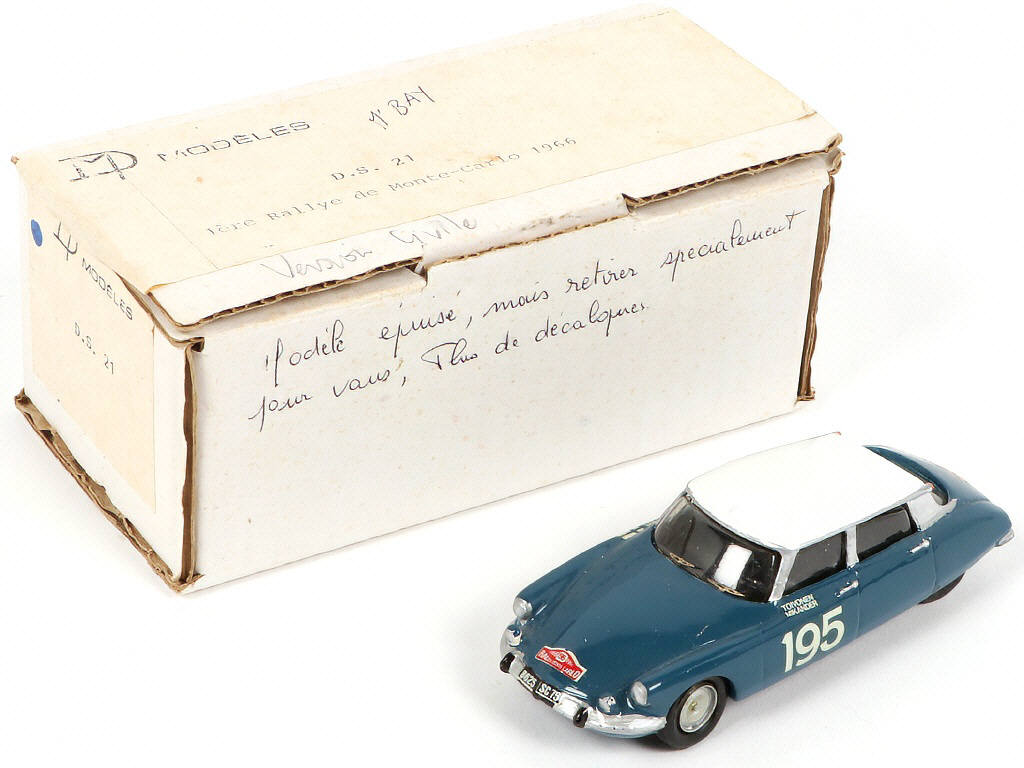 MODELES
Mr BAY
D.S. 21
1ère Rallye de Monte-Carlo 1966
Version Civille
MODELES
D.S. 21
Modéle épuisé, mais retirer specialement
pour vous, Plus de décalques.
TOIVONEN
MIKANDER
195
MONTE CARLO
8425 SG 75